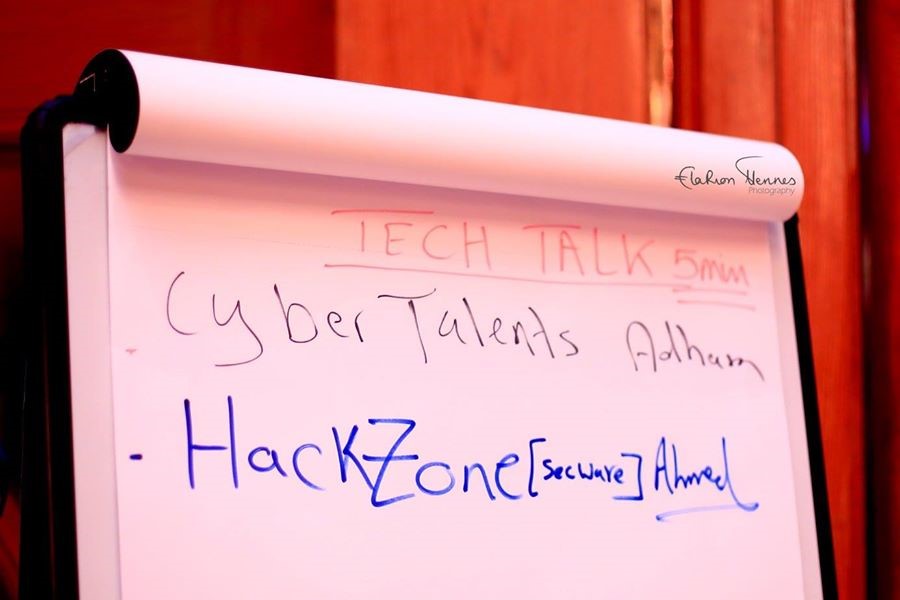 Elarion Hennes
Photography
TECH TALK 5min
CyberTalents Adham
- HackZone [secware] Ahmed